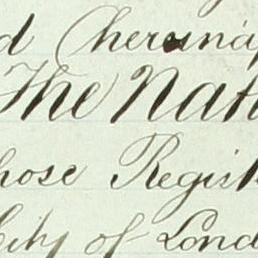 d (hereina
The Nati
hose Regist
City of Lond